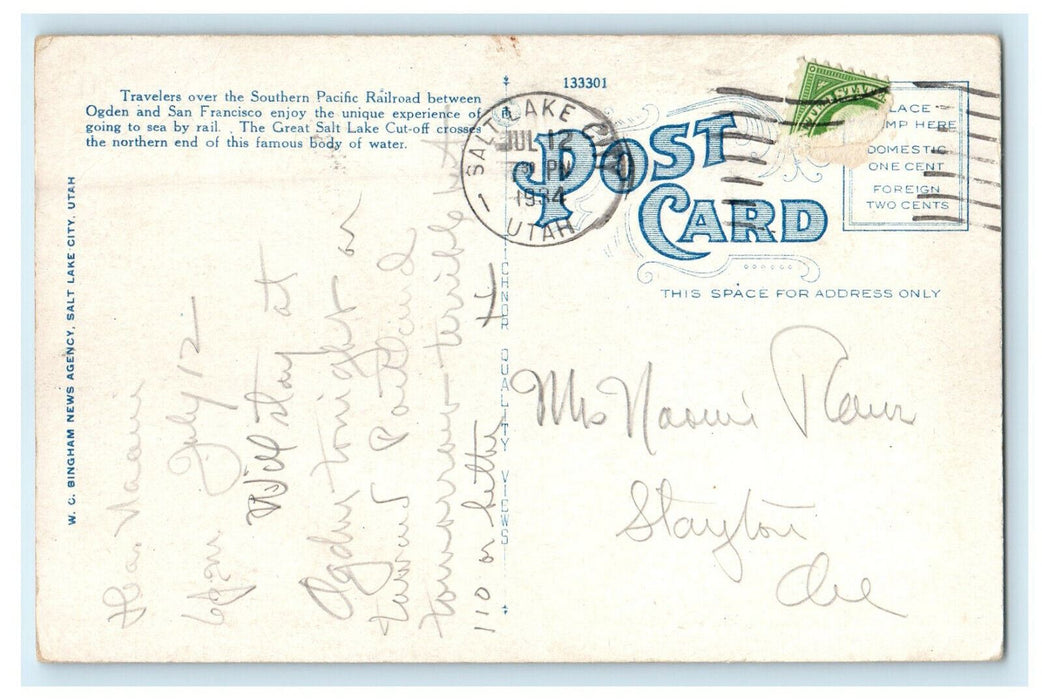 Travelers over the Southern Pacific Railroad between
Ogden and San Francisco enjoy the unique experience of
going to sea by rail. The Great Salt Lake Cut-off crosses
the northern end of this famous body of water.
W. C. BINGHAM NEWS AGENCY, SALT LAKE CITY, UTAH
Naomi
6 pm July 12
Will stay at
Ogden tonight on
toward Portland
tomorrow terrible hot
110 or better
133301
SALT LAKE CITY
JUL 12
PM
1934
UTAH
1
POST
CARD
THIS SPACE FOR ADDRESS ONLY
LACE
MP HERE
DOMESTIC
ONE CENT
FOREIGN
TWO CENTS
ICHNOR QUALITY VIEWS
Naomi
Stayton
Ore